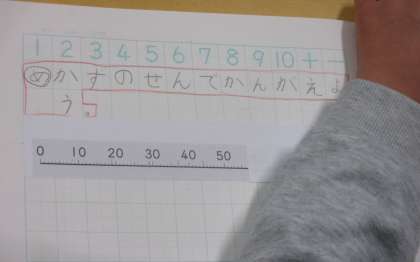 1 2 3 4 5 6 7 8 9 10 + -
め か す の せ ん で か ん が え よ
う 。
0 10 20 30 40 50